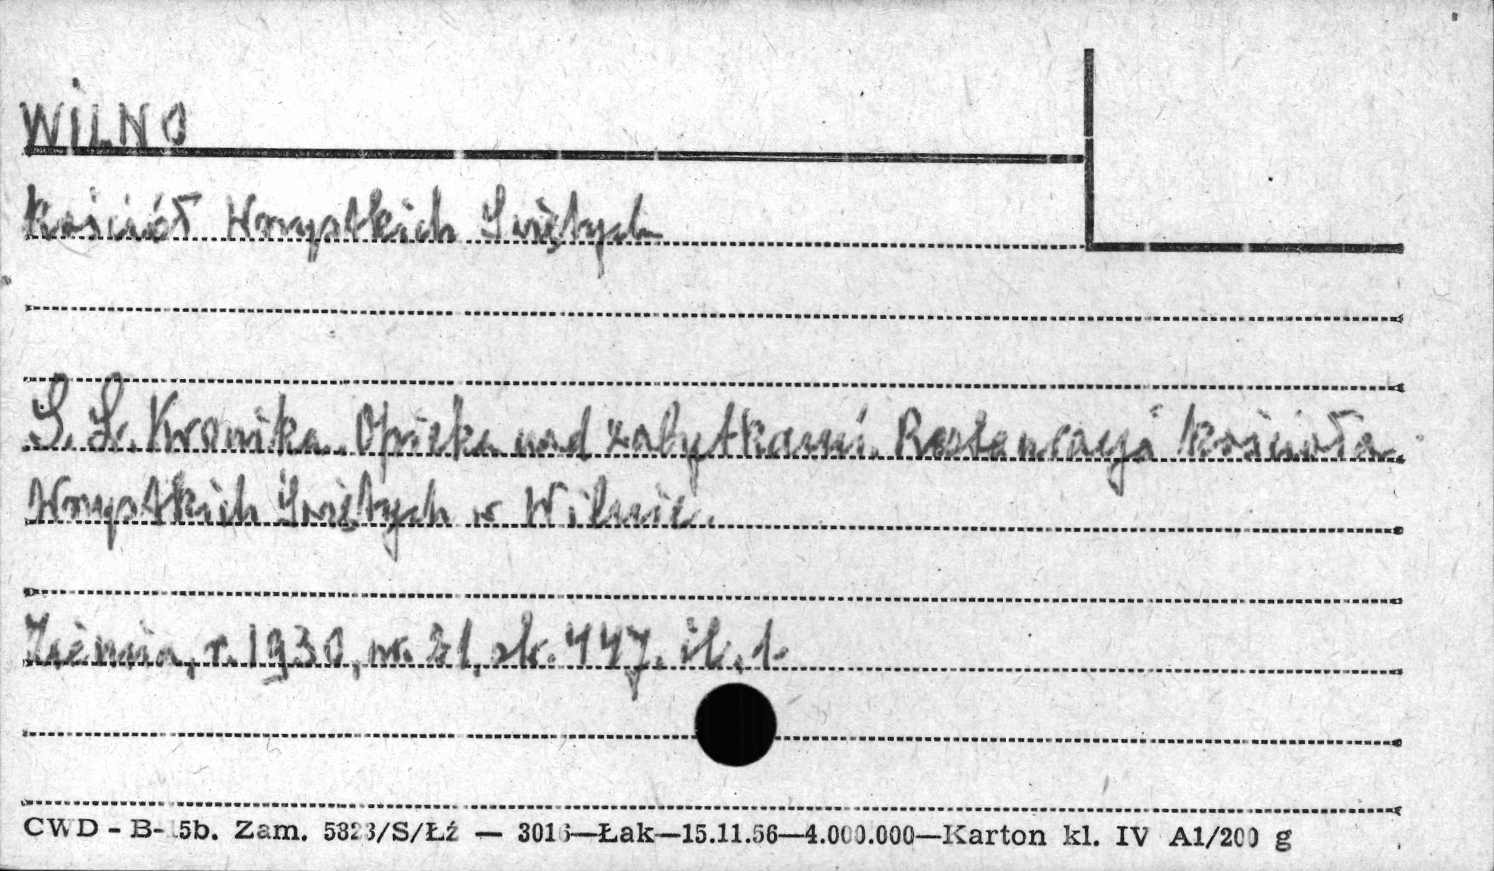 WILNO
Kościół Wszystkich Świętych
S. Ś. Kronika. Opieka nad zabytkami. Restauracja kościoła
Wszystkich Świętych w Wilnie.
Ziemia, r. 1930, nr. 21, str. 447. il. 1.
CWD - B-15b. Zam. 5823/S/Łź — 3016—Łak—15.11.56—4.000.000—Karton kl. IV A1/200 g